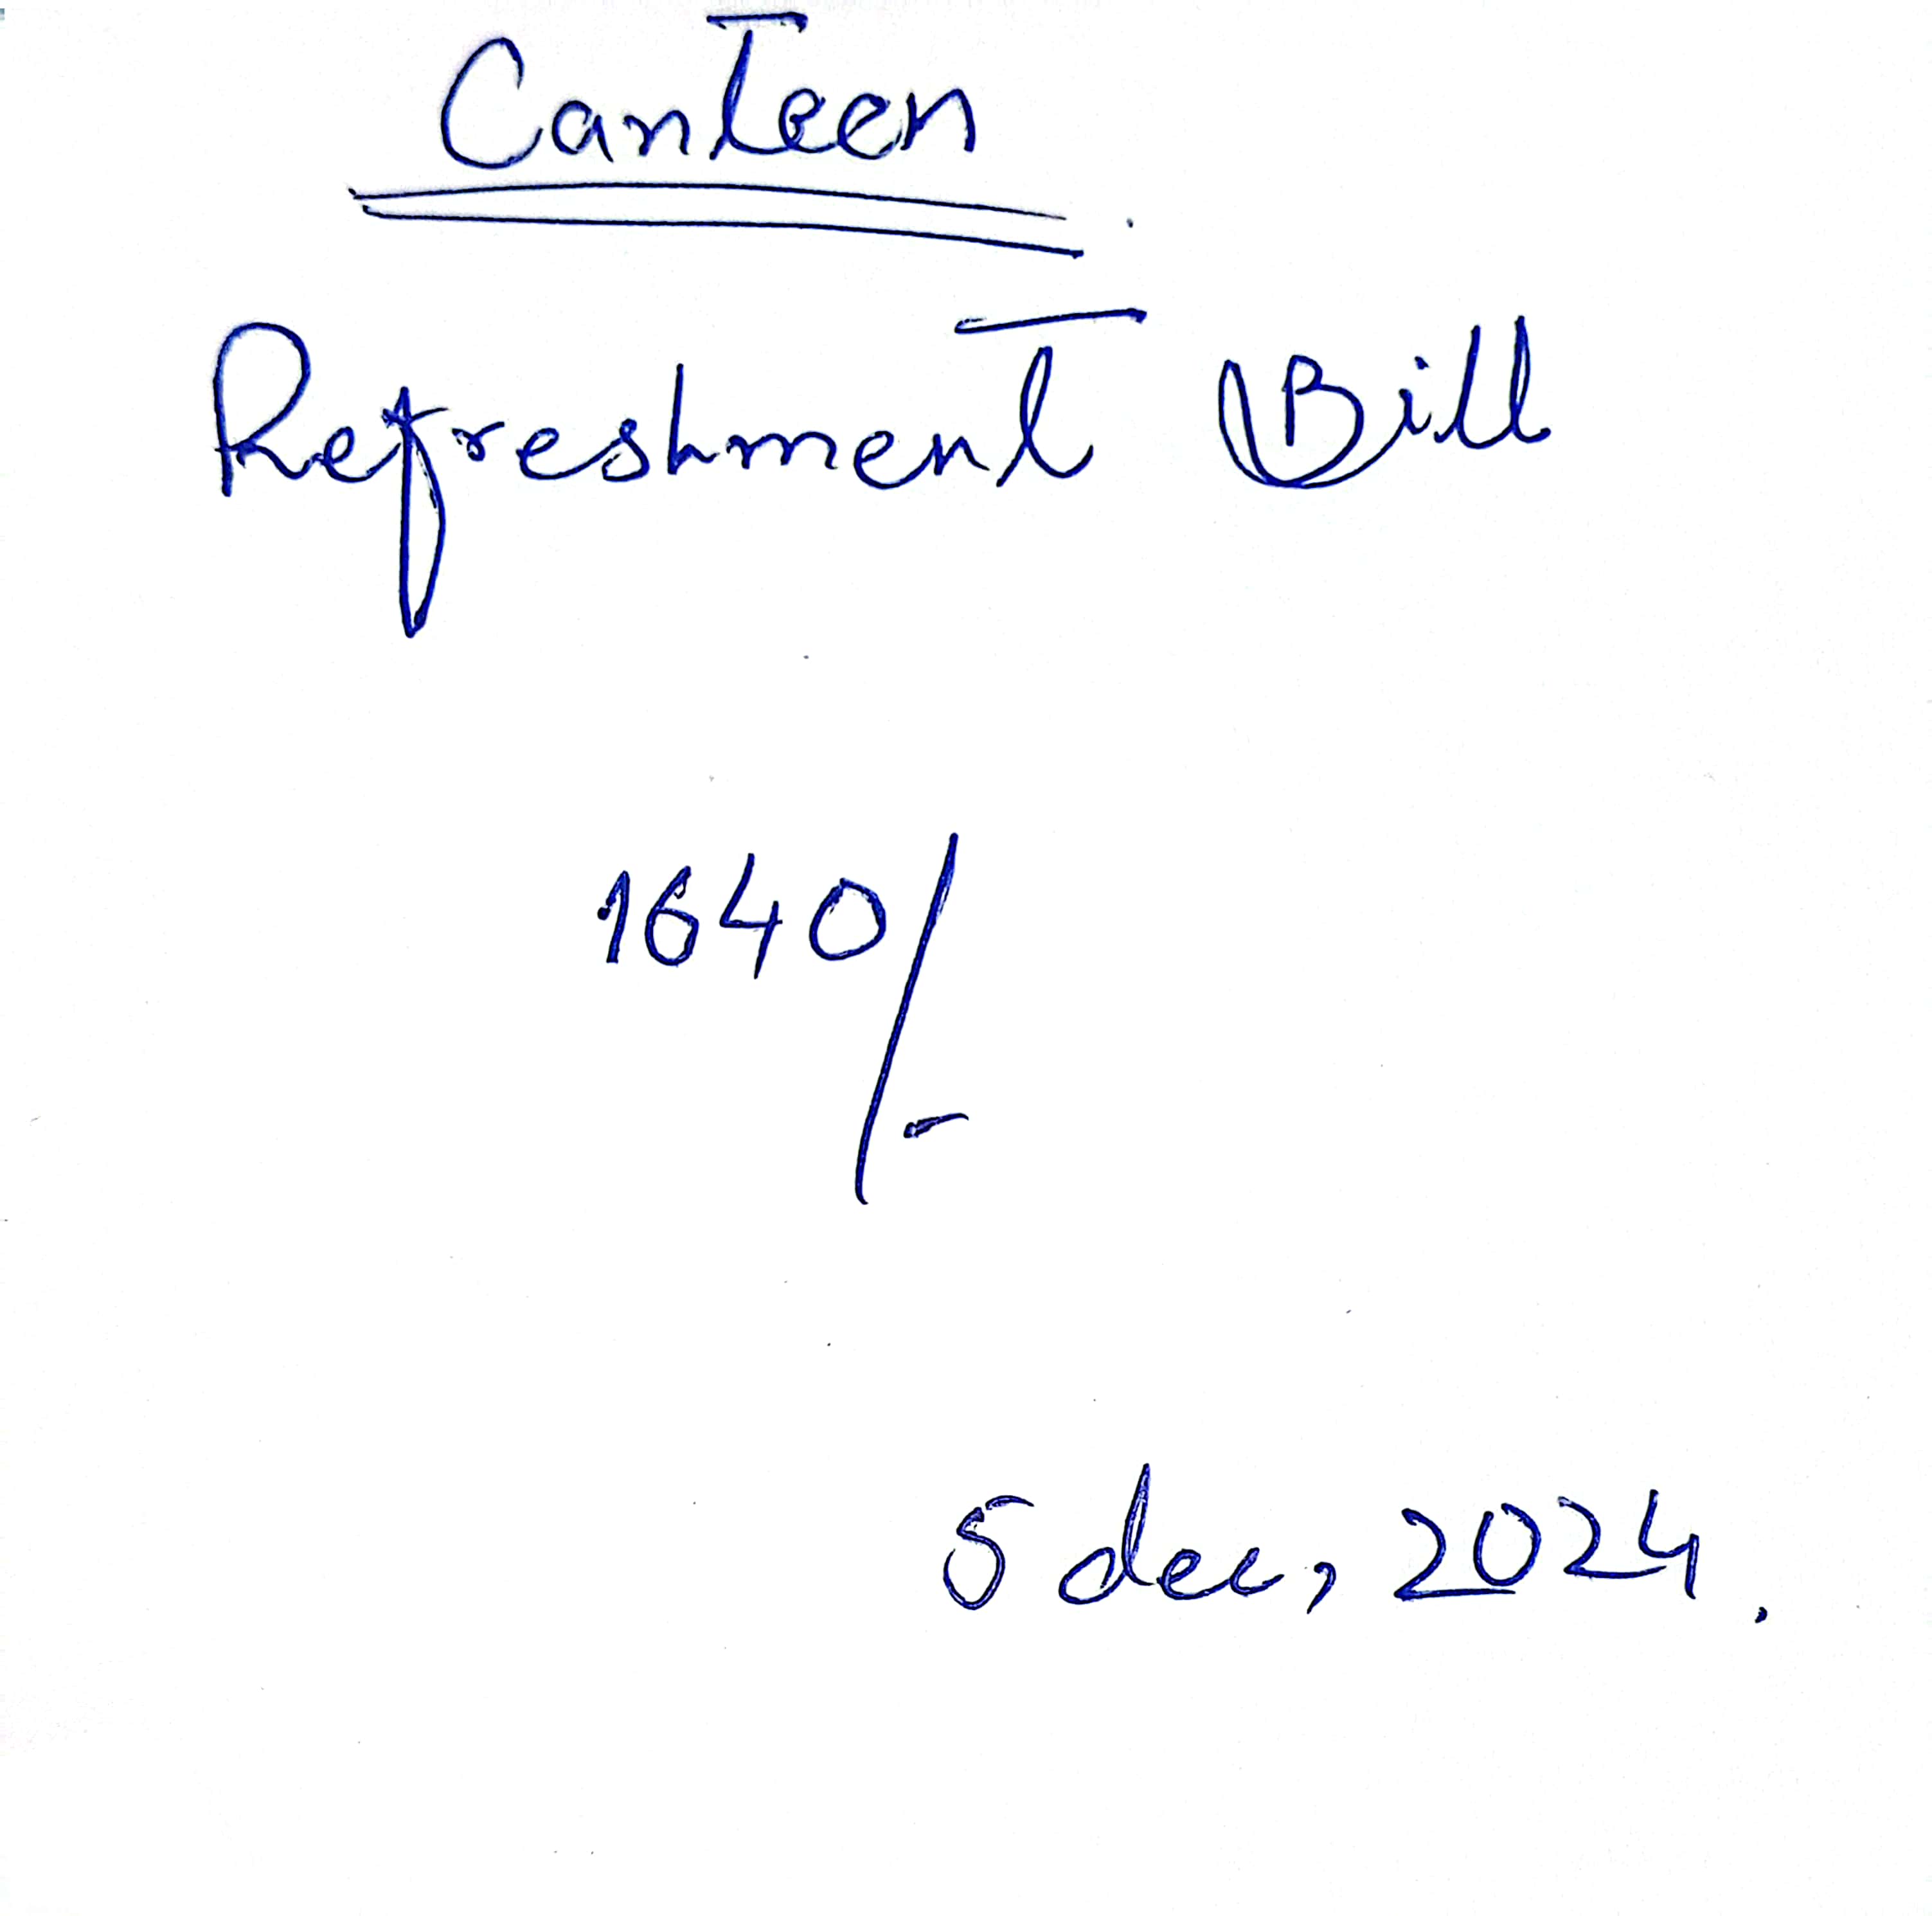 Canteen
Refreshment Bill
1640/-
5 dec, 2024.